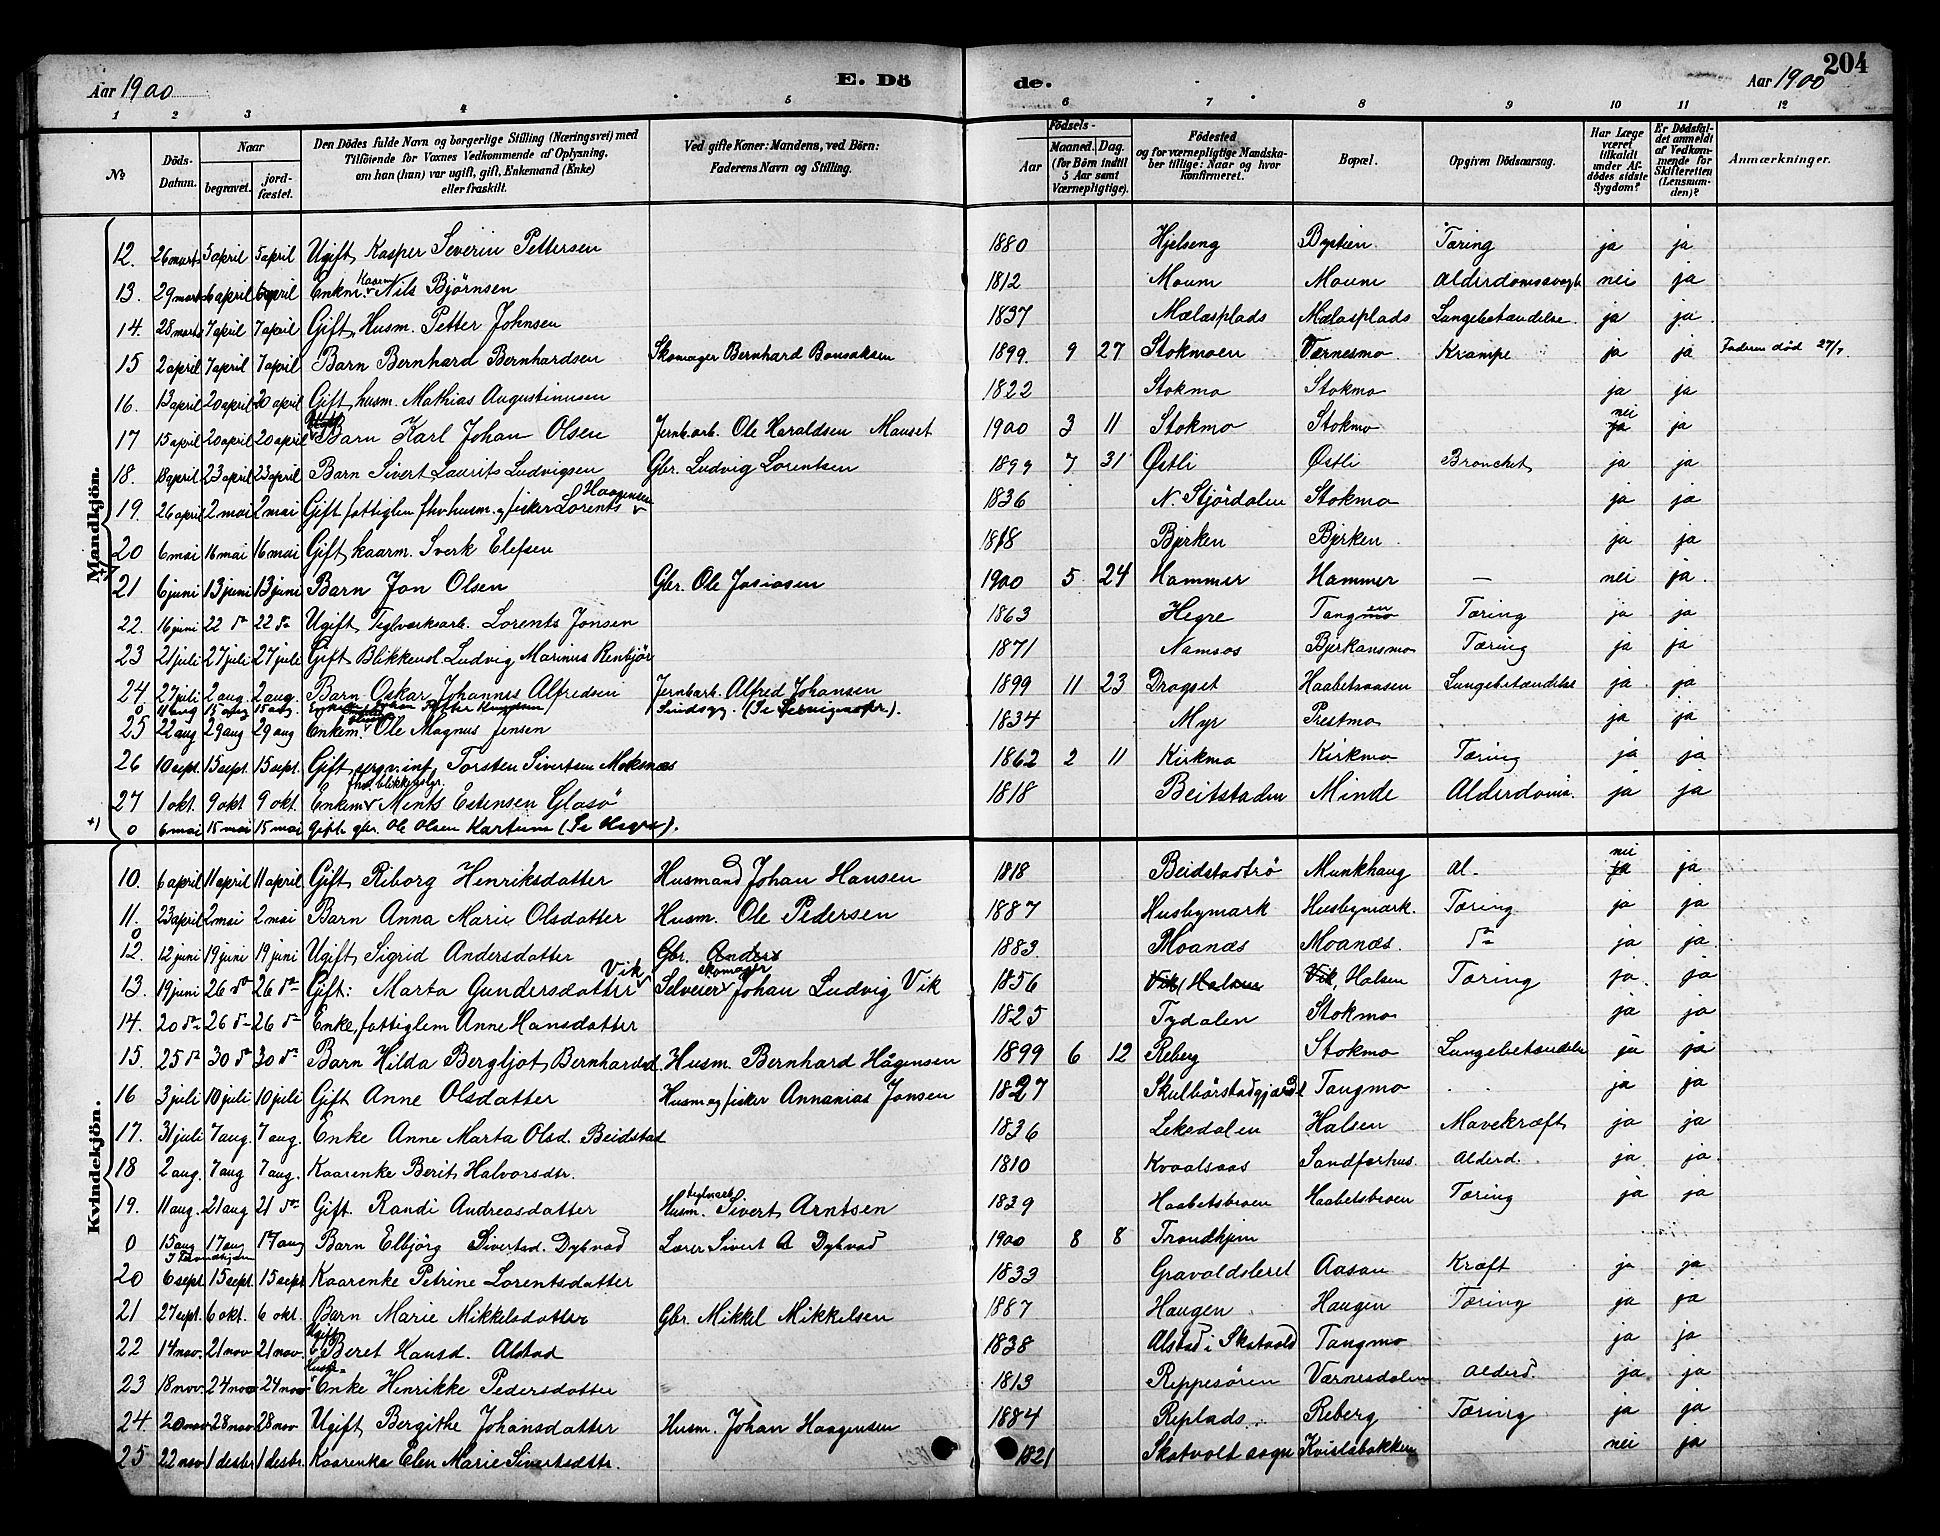 Aar 1900
E. Dö
de.
Aar 1900
204
1 2 3 4 5 6 7 8 9 10 11 12
No
Döds-Datum.
Naar
begravet.
jord-fæstet.
Den Dödes fulde Navn og borgerlige Stilling (Næringsvei) med
Tilföiende for Voxnes Vedkommende af Oplysning,
om han (hun) var ugift, gift, Enkemand (Enke)
eller fraskilt.
Ved gifte Koner: Mandens, ved Börn:
Faderens Navn og Stilling.
Födsels-
Aar
Maaned. Dag.
(for Börn indtil
5 Aar samt
Værnepligtige).
Födested
og for værnepligtige Mandska-
ber tillige: Naar og hvor
konfirmeret.
Bopæl.
Opgiven Dödsaarsag.
Har Læge
været
tilkaldt
under Af-
dödes sidste
Sygdom?
Er Dödsfal-
det anmeldt
af Vedkom-
mende for
Skifteretten
(Lensman-
den)?
Anmærkninger.
Mandkjön.
12. 26 marts 5 april 5 april Ugift Kasper Severin Pettersen 1880 Hjelseng Tæring ja ja
13. 29 marts 6 april 6 april Enkm. Kaarm. Nils Björnsen 1812 Moum Moum nei ja
14. 28 marts 7 april 7 april Gift Husm. Petter Johnsen 1837 Mælasplads Mælasplads Lungebetændelse. ja ja
15 2 april 7 april 7 april Barn Bernhard Bernhardsen Skomager Bernhard Bonsaksen 1899 9 27 Stokmoen Værnesmo Krampe ja ja Faderen död 27/7.
16. 13 april 20 april 20 april Gift husm. Mathias Augustinusen 1822 Stokmo Stokmo ja ja
17 15 april 20 april 20 april Barn Karl Johan Olsen Jernb.arb. Ole Haraldsen Mauset 1900 3 11 Stokmo Stokmo nei ja ja
18. 18 april 23 april 23 april Barn Sivert Laurits Ludvigsen Gbr. Ludvig Lorentsen 1899 7 31 Østli Østli Bronchet ja ja
19. 26 april 2 mai 2 mai Gift fattiglem fhv husm. og fisker Lorents Haagensen 1836 N. Stjördalen Stokmo ja ja
20 6 mai 16 mai 16 mai Gift kaarm. Sverk Elefsen 1818 Bjerken Bjerken ja ja
21 6 juni 13 juni 13 juni Barn Jon Olsen Gbr. Ole Josiasen 1900 5 24 Hammer Hammer — nei ja.
22. 16 juni 22 do 22 do Ugift Teglværksarb. Lorents Jonsen 1863 Hegre Tangmoen Tæring ja ja
23 21 juli 27 juli 27 juli Gift Blikkensl. Ludvig Marinus Renbjör 1871 Namsos Bjerkansmo Tæring ja ja
24 27 juli 2 aug. 2 aug. Barn Oskar Johannes Alfredsen Jernb.arb. Alfred Johansen 1899 11 23 Dragset Haabetsaasen Lungebetændelse ja ja
0 11 aug 15 aug 15 aug. Johan Petter Sindsyg.
25 22 aug 29 aug 29 aug Enkem. Ole Magnus Jensen 1834 Myr Prestmo ja ja
26 10 sept. 15 sept. 15 sept. Gift Torsten Sivertsen Moksnæs 1862 2 11 Kirkmo Kirkmo Tæring ja ja
27 1 okt. 9 okt 9 okt. Enkem. fhv. blikkenslgr. Ments Estensen Glasö 1818 Beitstaden Minde Alderdoms. ja ja
+) 0 6 mai 15 mai 15 mai Gift gbr. Ole Olsen Kartum (Se Hegre).
Kvindekjön.
10. 6 april 11 april 11 april Gift Riborg Henriksdatter Husmand Johan Hansen 1818 Beidstadtrö Munkhaug al- nei ja ja
11. 23 april 2 mai 2 mai Barn Anna Marie Olsdatter Husm. Ole Pedersen 1887 Husbymark Husbymark. Tæring ja ja
0
12. 12 juni 19 juni 19 juni Ugift Sigrid Andersdatter Gbr. Anders 1883. Moanæs Moanæs. do ja ja
13. 19 juni 26 do 26 do Gift: Marta Gundersdatter Vik Selveier skomager Johan Ludvig Vik 1856 Vik, Halsen Vik, Halsen Tæring ja ja
14. 20 do 26 do 26 do Enke, fattiglem Anne Hansdatter 1825 Tydalen Stokmo ja ja
15. 25 do 30 do 30 do Barn Hilda Bergljot Bernhardsd. Husm. Bernhard Hågensen 1899 6 12 Reberg Stokmo Lungebetændelse ja ja
16 3 juli 10 juli 10 juli Gift Anne Olsdatter Husm og fisker Annanias Jonsen 1827 Tangmo ja ja
17. 31 juli 7 aug. 7 aug. Enke Anne Marta Olsd. Beidstad 1836 Leksdalen Halsen Mavekræft ja ja
18 2 aug. 7 aug 7 aug. Kaarenke Berit Halvorsdtr. 1810 Kvaalsaas Sandferhus. Alderd. ja ja
19. 11 aug. 21 aug 21 do Gift. Randi Andreasdatter Husm. teglverk. Sivert Arntsen 1839 Haabetsbroen Haabetsbroen Tæring ja ja
0 15 aug 17 aug 17 aug Barn Elbjörg Sivertsd. Dybvad Lærer Sivert A Dybvad 1900 8 8 Trondhjem
20 6 sept. 15 sept 15 sept Kaarenke Petrine Lorentsdatter 1833 Gravaldsleret Aasan Kræft ja ja
21 27 sept. 6 okt. 6 okt. Barn Marie Mikkelsdatter Gbr. Mikkel Mikkelsen 1887 Haugen Haugen Tæring ja ja
22 14 nov. 21 nov 21 nov. Ugift Beret Hansd. Alstad 1838 Alstad i Skatvold Tangmo ja ja
23 18 nov 24 nov 24 nov Enke Henrikke Pedersdatter 1813 Reppesören Værnesdalen Alderd. ja ja
24. 20 nov 28 nov 28 nov Ugift Bergithe Johansdatter Husm. Johan Haagensen 1884 Replads. Reberg Tæring ja ja
25 22 nov 1 desbr 1 desbr. Kaarenke Elen Marie Sivertsdtr. 1821 Skatvolt sogn Kvislabakken nei ja